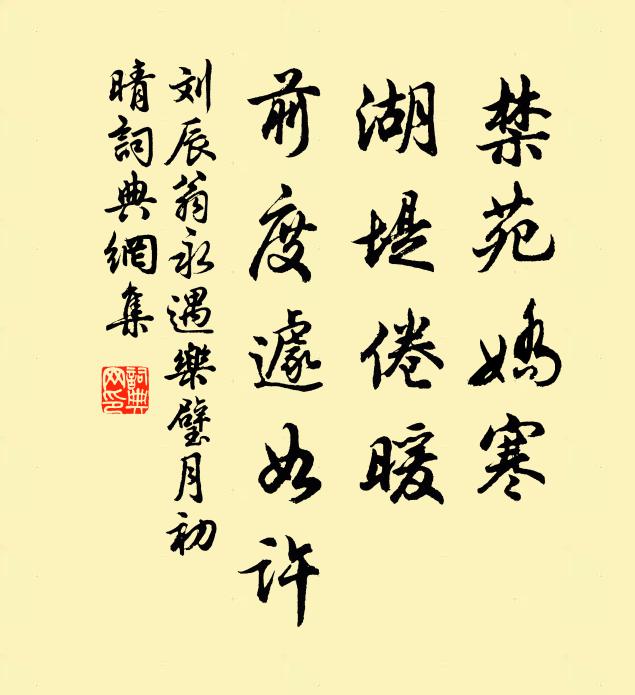 禁苑嬌寒
湖堤倦暖
前度遽如許
刘辰翁永遇樂璧月初
晴詞典網集
詞典网印